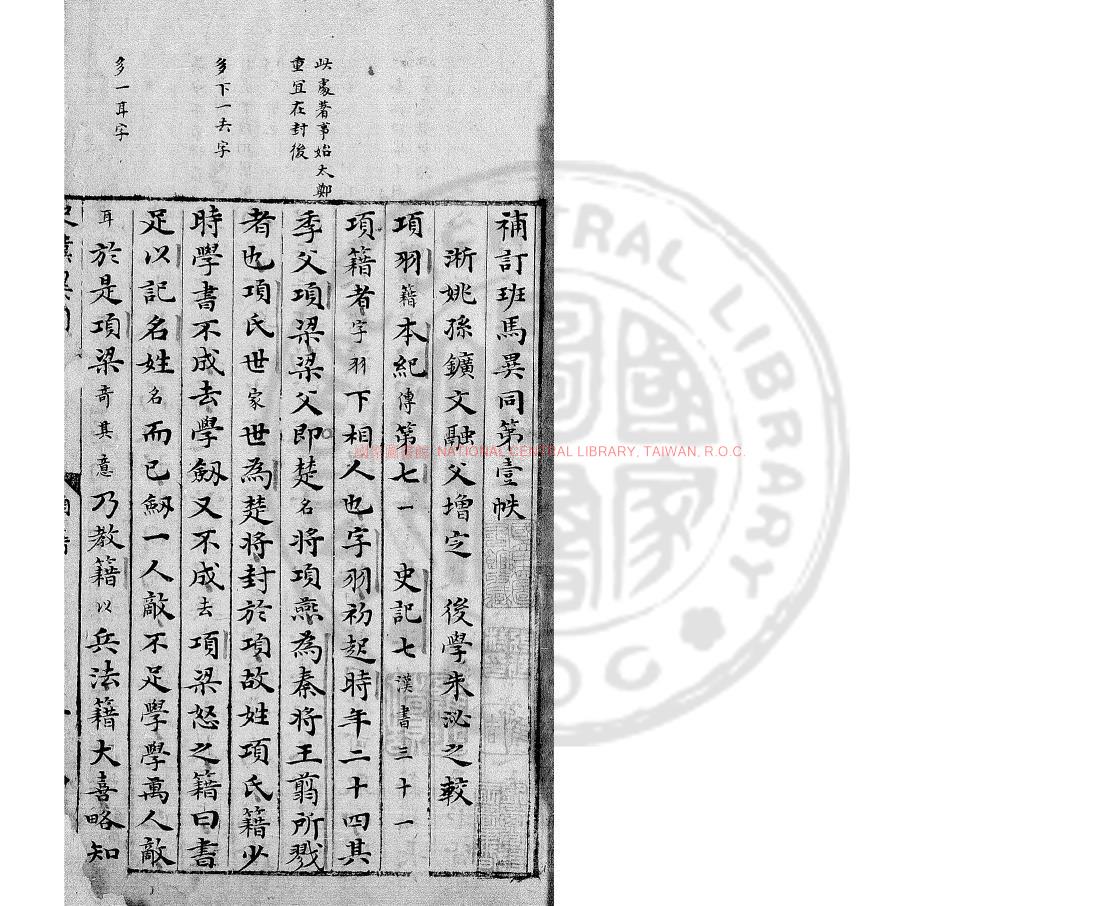 補訂班馬異同第壹帙
淅姚孫鑛文融父增定 後學朱泌之較
項羽籍本紀傳第七一 史記七漢書三十一
項籍者字羽下相人也字羽初起時年二十四其
季父項梁梁父即楚名將項燕為秦將王翦所戮
者也項氏世家世為楚將封於項故姓項氏籍少
時學書不成去學劔又不成去項梁怒之籍曰書
足以記名姓名而已劔一人敵不足學學萬人敵
耳於是項梁奇其意乃教籍以兵法籍大喜略知
此處著事始太鄭
重宜在封後
多下一去字
多一耳字
國家圖書館 NATIONAL CENTRAL LIBRARY, TAIWAN, R.O.C.
CENTRAL LIBRARY
R.O.C